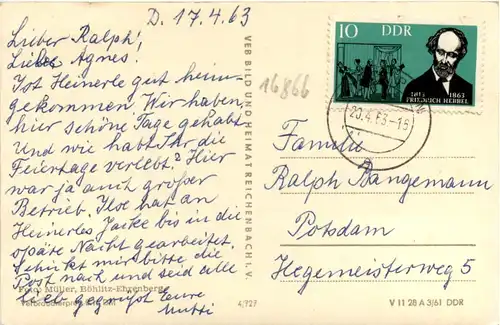 D. 17.4.63
Lieber Ralph!,
Liebe Agnes!
Ist Heinerle gut heim-
gekommen Wir haben,
hier schöne Tage gehabt
Und wie habt Ihr die
Feiertage verlebt? Hier
war ja auch großer
Betrieb. Ilse hat an
Heinerles Jacke bis in die
späte Nacht gearbeitet.
Schickt mir bitte die
Post nach und seid alle
lieb gegrüßt Eure
Mutti
Foto: Müller, Böhlitz-Ehrenberg
VEB BILD UND HEIMAT REICHENBACH I. V.
4/727
16866
10 DDR
1813 1863
FRIEDRICH HEBBEL
20.4.63-18
Familie
Ralph Bangemann
Potsdam
Hegemeisterweg 5
V 11 28 A 3/61 DDR